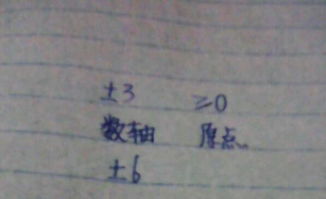 ±3 ≥0
数轴 原点
±6